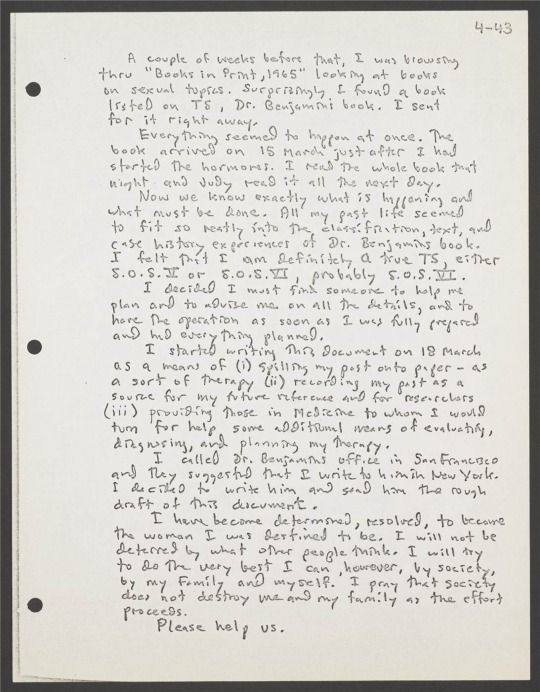 4-43
A couple of weeks before that, I was browsing
thru "Books in Print, 1965" looking at books
on sexual topics. Surprisingly I found a book
listed on TS, Dr. Benjamins book. I sent
for it right away.
Everything seemed to happen at once. The
book arrived on 15 March just after I had
started the hormones. I read the whole book that
night and Judy read it all the next day.
Now we know exactly what is happening and
what must be done. All my past life seemed
to fit so neatly into the classification, text, and
case history experiences of Dr. Benjamins book.
I felt that I am definitely a true TS, either
S.O.S. V or S.O.S. VI, probably S.O.S. VI.
I decided I must find someone to help me
plan and to advise me on all the details, and to
have the operation as soon as I was fully prepared
and had everything planned.
I started writing this document on 18 March
as a means of (i) spilling my past onto paper - as
a sort of therapy (ii) recording my past as a
source for my future reference and for researchers
(iii) providing those in Medicine to whom I would
turn for help some additional means of evaluating,
diagnosing, and planning my therapy.
I called Dr. Benjamins office in San Francisco
and they suggested that I write to him in New York.
I decided to write him and send him the rough
draft of this document.
I have become determined, resolved, to become
the woman I was destined to be. I will not be
deterred by what other people think. I will try
to do the very best I can, however, by society,
by my family and myself. I pray that society
does not destroy me and my family as the effort
proceeds.
Please help us.